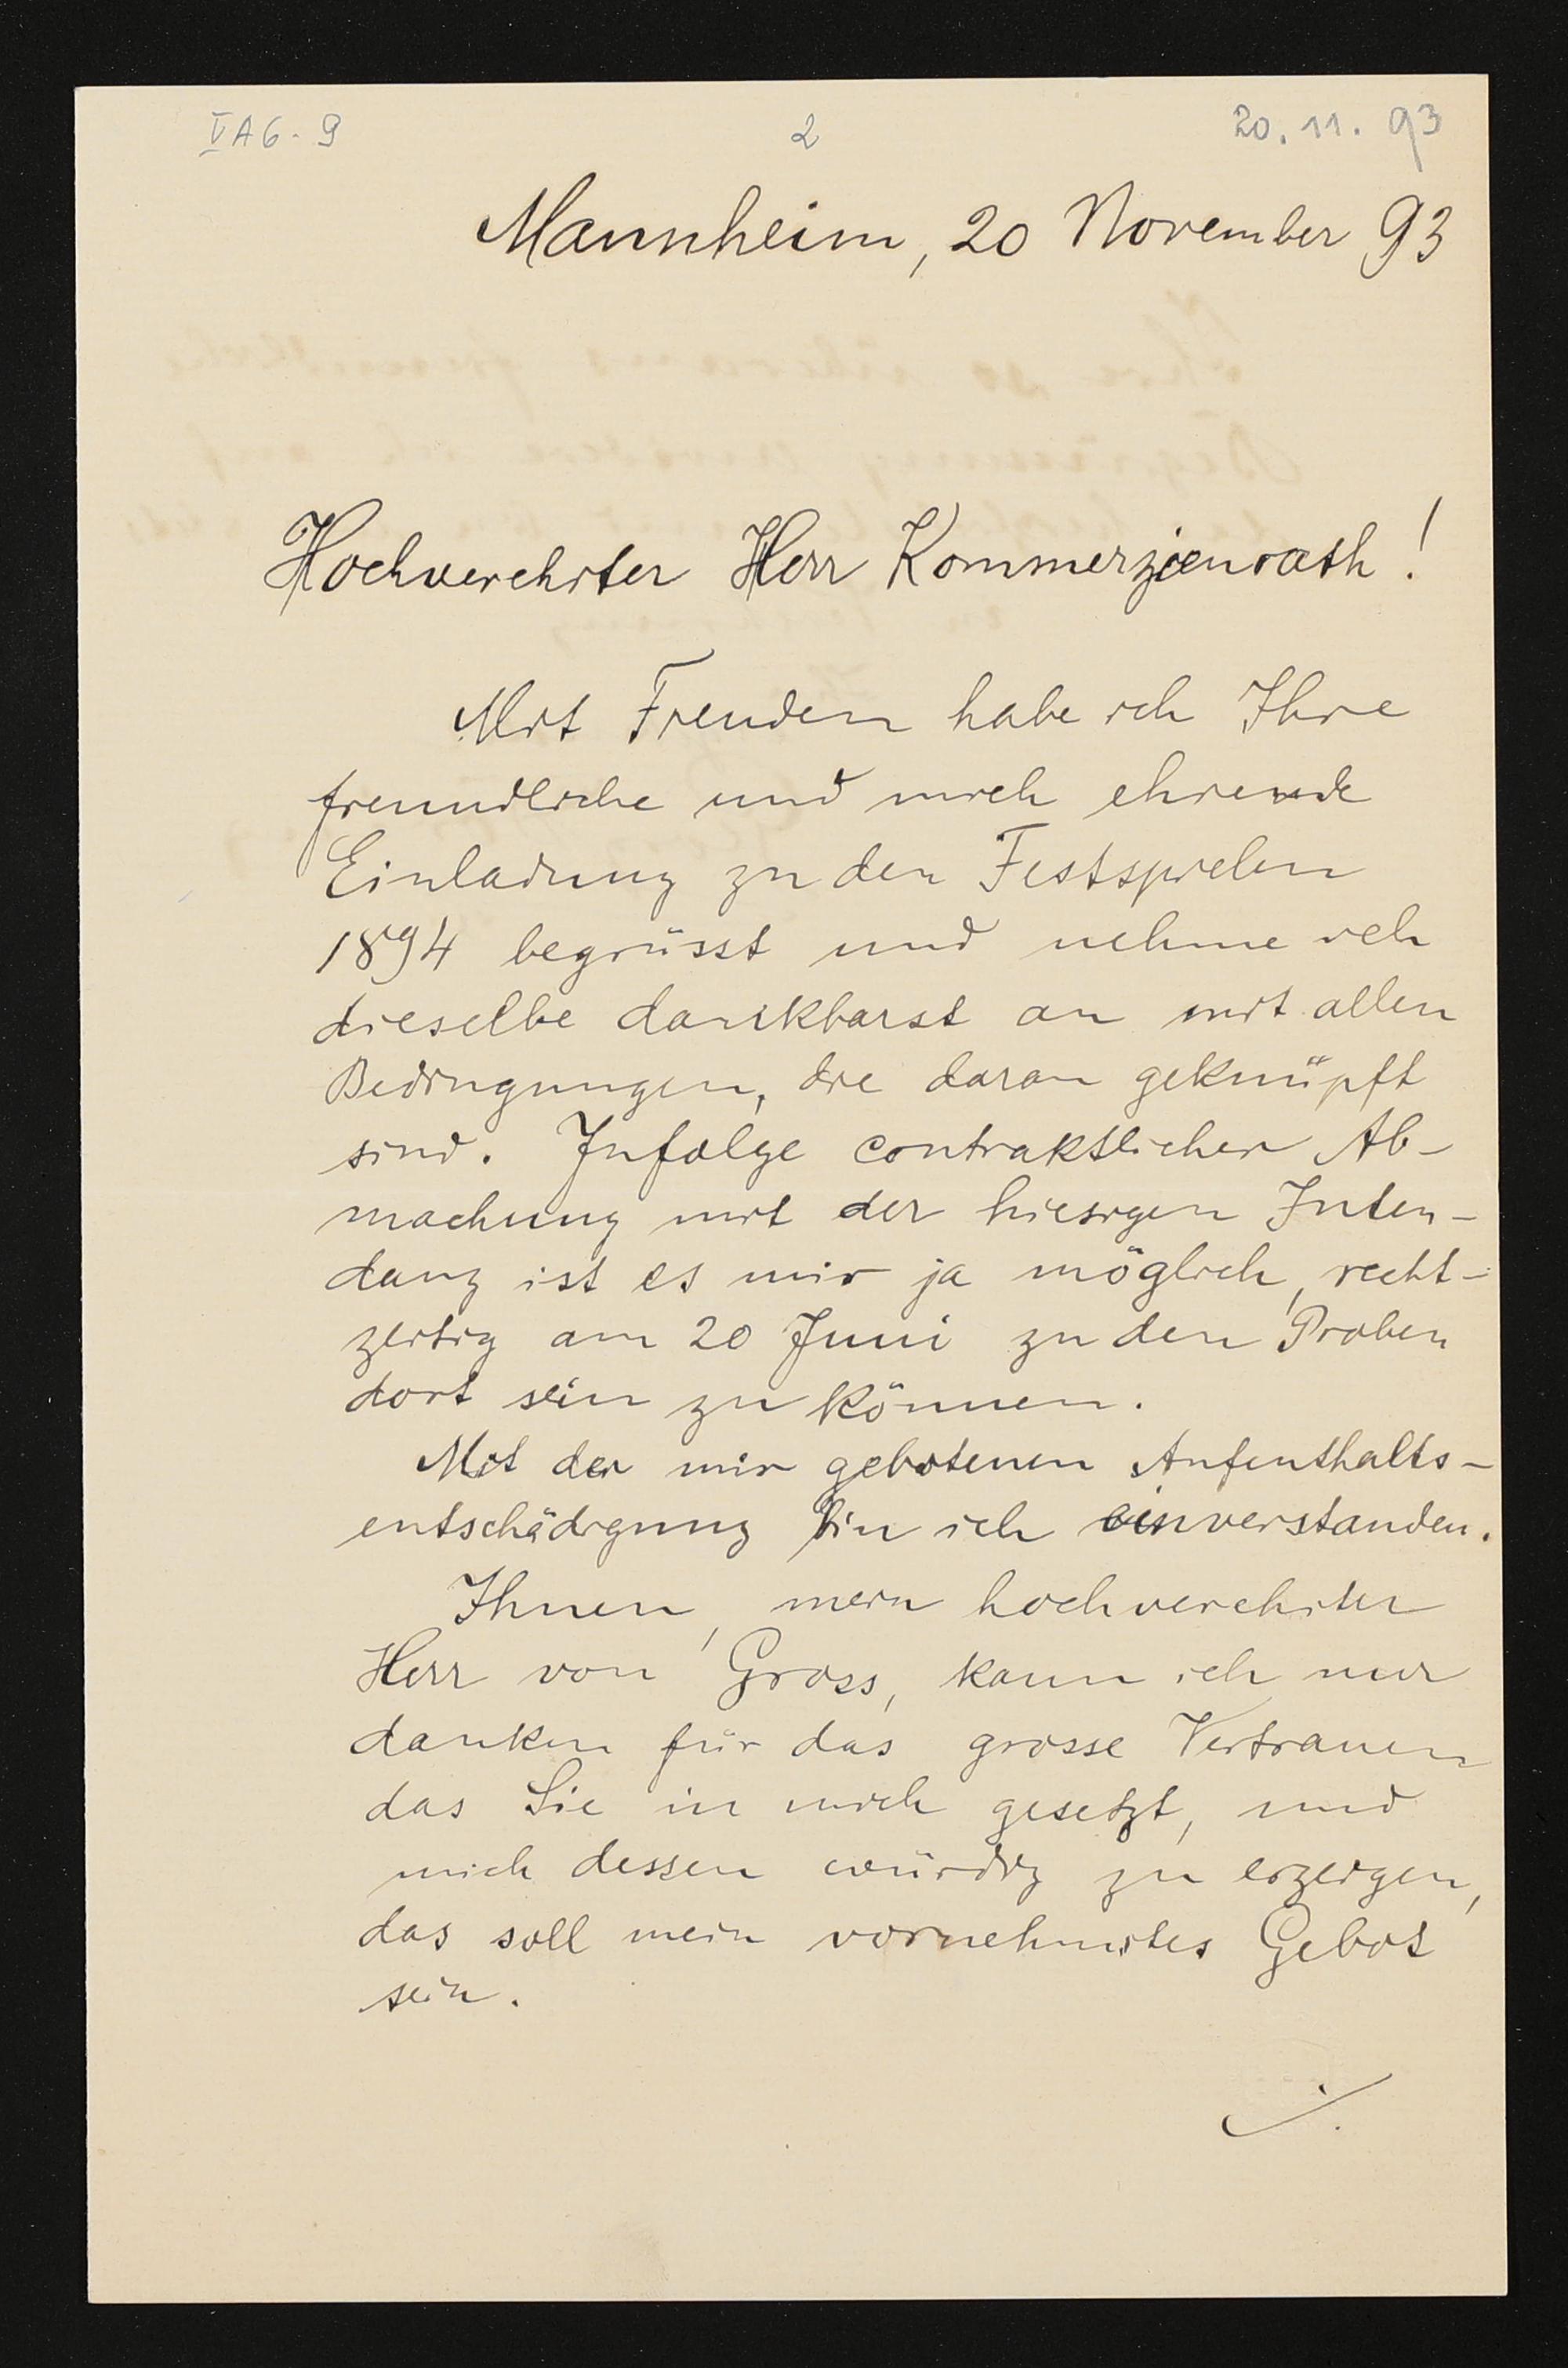 V A 6 - 9 2 20. 11. 93
Mannheim, 20 November 93
Hochverehrter Herr Kommerzienrath!
Mit Freuden habe ich Ihre
freundliche und mich ehrende
Einladung zu den Festspielen
1894 begrüsst und nehme ich
dieselbe dankbarst an mit allen
Bedingungen, die daran geknüpft
sind. Infolge contraktlicher Ab-
machung mit der hiesigen Inten-
danz ist es mir ja möglich, recht-
zeitig am 20 Juni zu den Proben
dort sein zu können.
Mit der mir gebotenen Aufenthalts-
entschädigung bin ich einverstanden.
Ihnen, mein hochverehrter
Herr von Gross, kann ich nur
danken für das grosse Vertrauen
das Sie in mich gesetzt, und
mich dessen würdig zu erzeigen,
das soll mein vornehmstes Gebot
sein.
./.